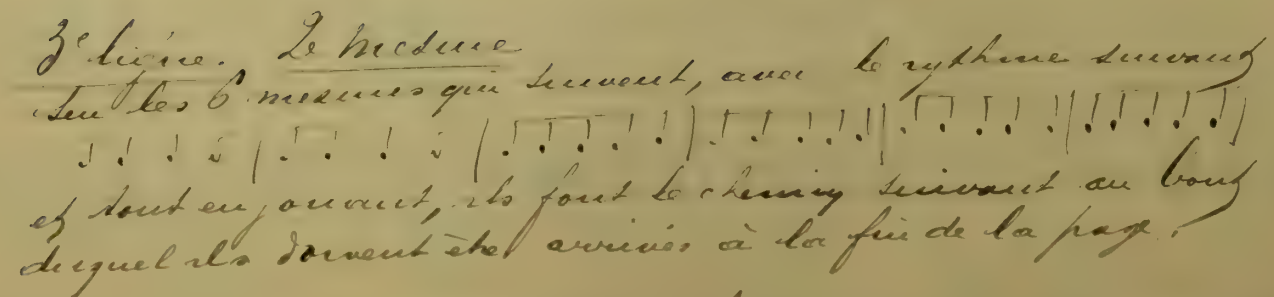 3e ligne. 2e mesure
sur les 6 mesures qui suivent, avec le rythme suivant
et tout en jouant, ils font le chemin suivant au bout
duquel ils doivent être arrivés à la fin de la page.